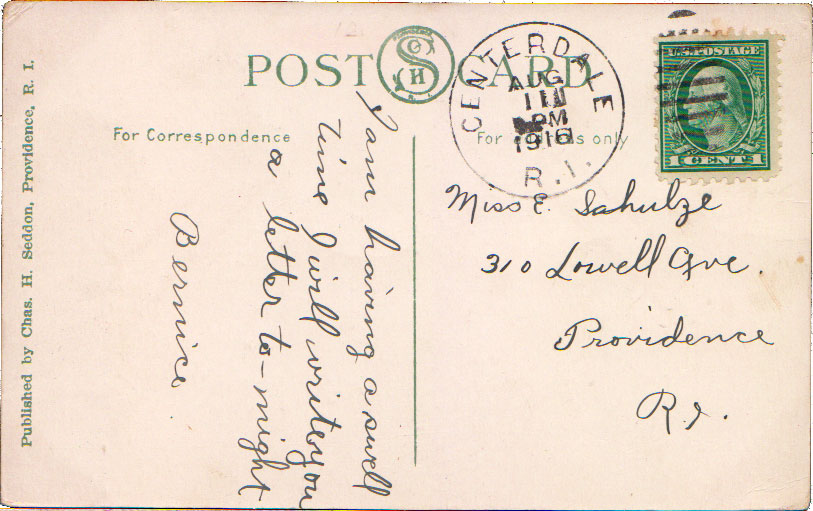 POST CARD
C S H
For Correspondence
For address only
CENTERDALE
AUG
11
PM
1916
R.I.
U.S. POSTAGE
1 CENT 1
I am having a swell
time I will write you
a letter to-night
Bernice
Miss E. Sahulze
310 Lowell Ave.
Providence
R.I.
Published by Chas. H. Seddon, Providence, R. I.